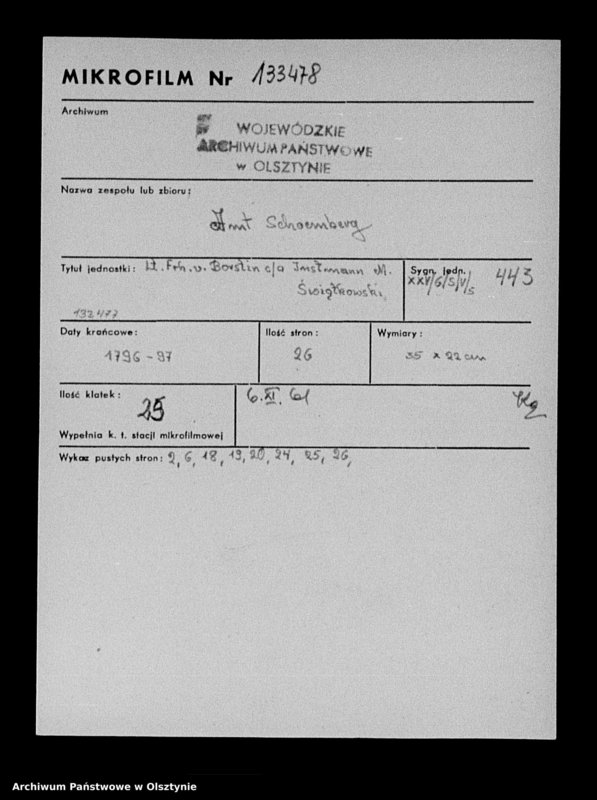 MIKROFILM Nr 133478
Archiwum
WOJEWÓDZKIE
ARCHIWUM PAŃSTWOWE
w OLSZTYNIE
Nazwa zespołu lub zbioru:
Amt Schoemberg
Tytuł jednostki: Lt. Frh. v. Borstin c/a Instmann M.
Świątkowski
132477
Sygn. jedn.
XXV/6/S/V/S
443
Daty krańcowe:
1796-97
Ilość stron:
26
Wymiary:
35 x 22 cm
Ilość klatek:
25
Wypełnia k. t. stacji mikrofilmowej
6. XI. 61
Wykaz pustych stron: 2, 6, 18, 19, 20, 24, 25, 26,
Archiwum Państwowe w Olsztynie